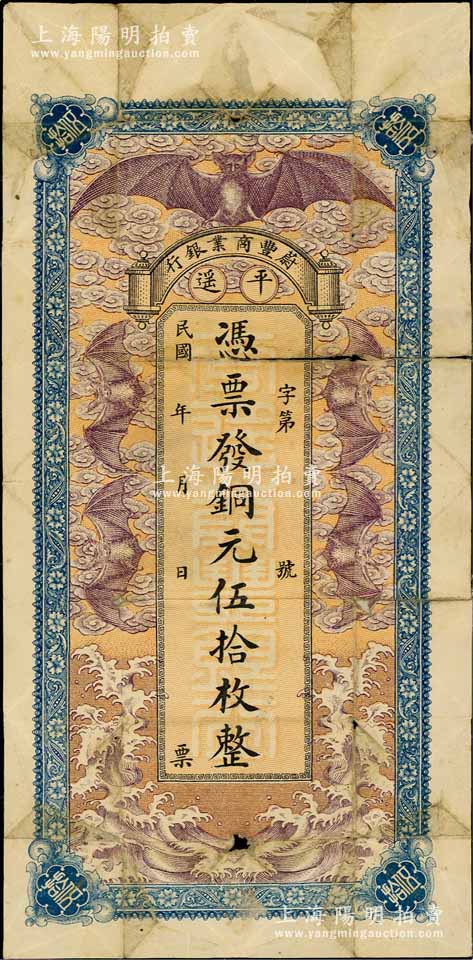 上海陽明拍賣
www.yangmingauction.com
伍拾
伍拾
蔚豐商業銀行
平遥
字第 號
憑票發銅元伍拾枚整
民國 年 月 日 票
上海陽明拍賣
www.yangmingauction.com
伍拾
伍拾
上海陽明拍賣
www.yangmingauction.com